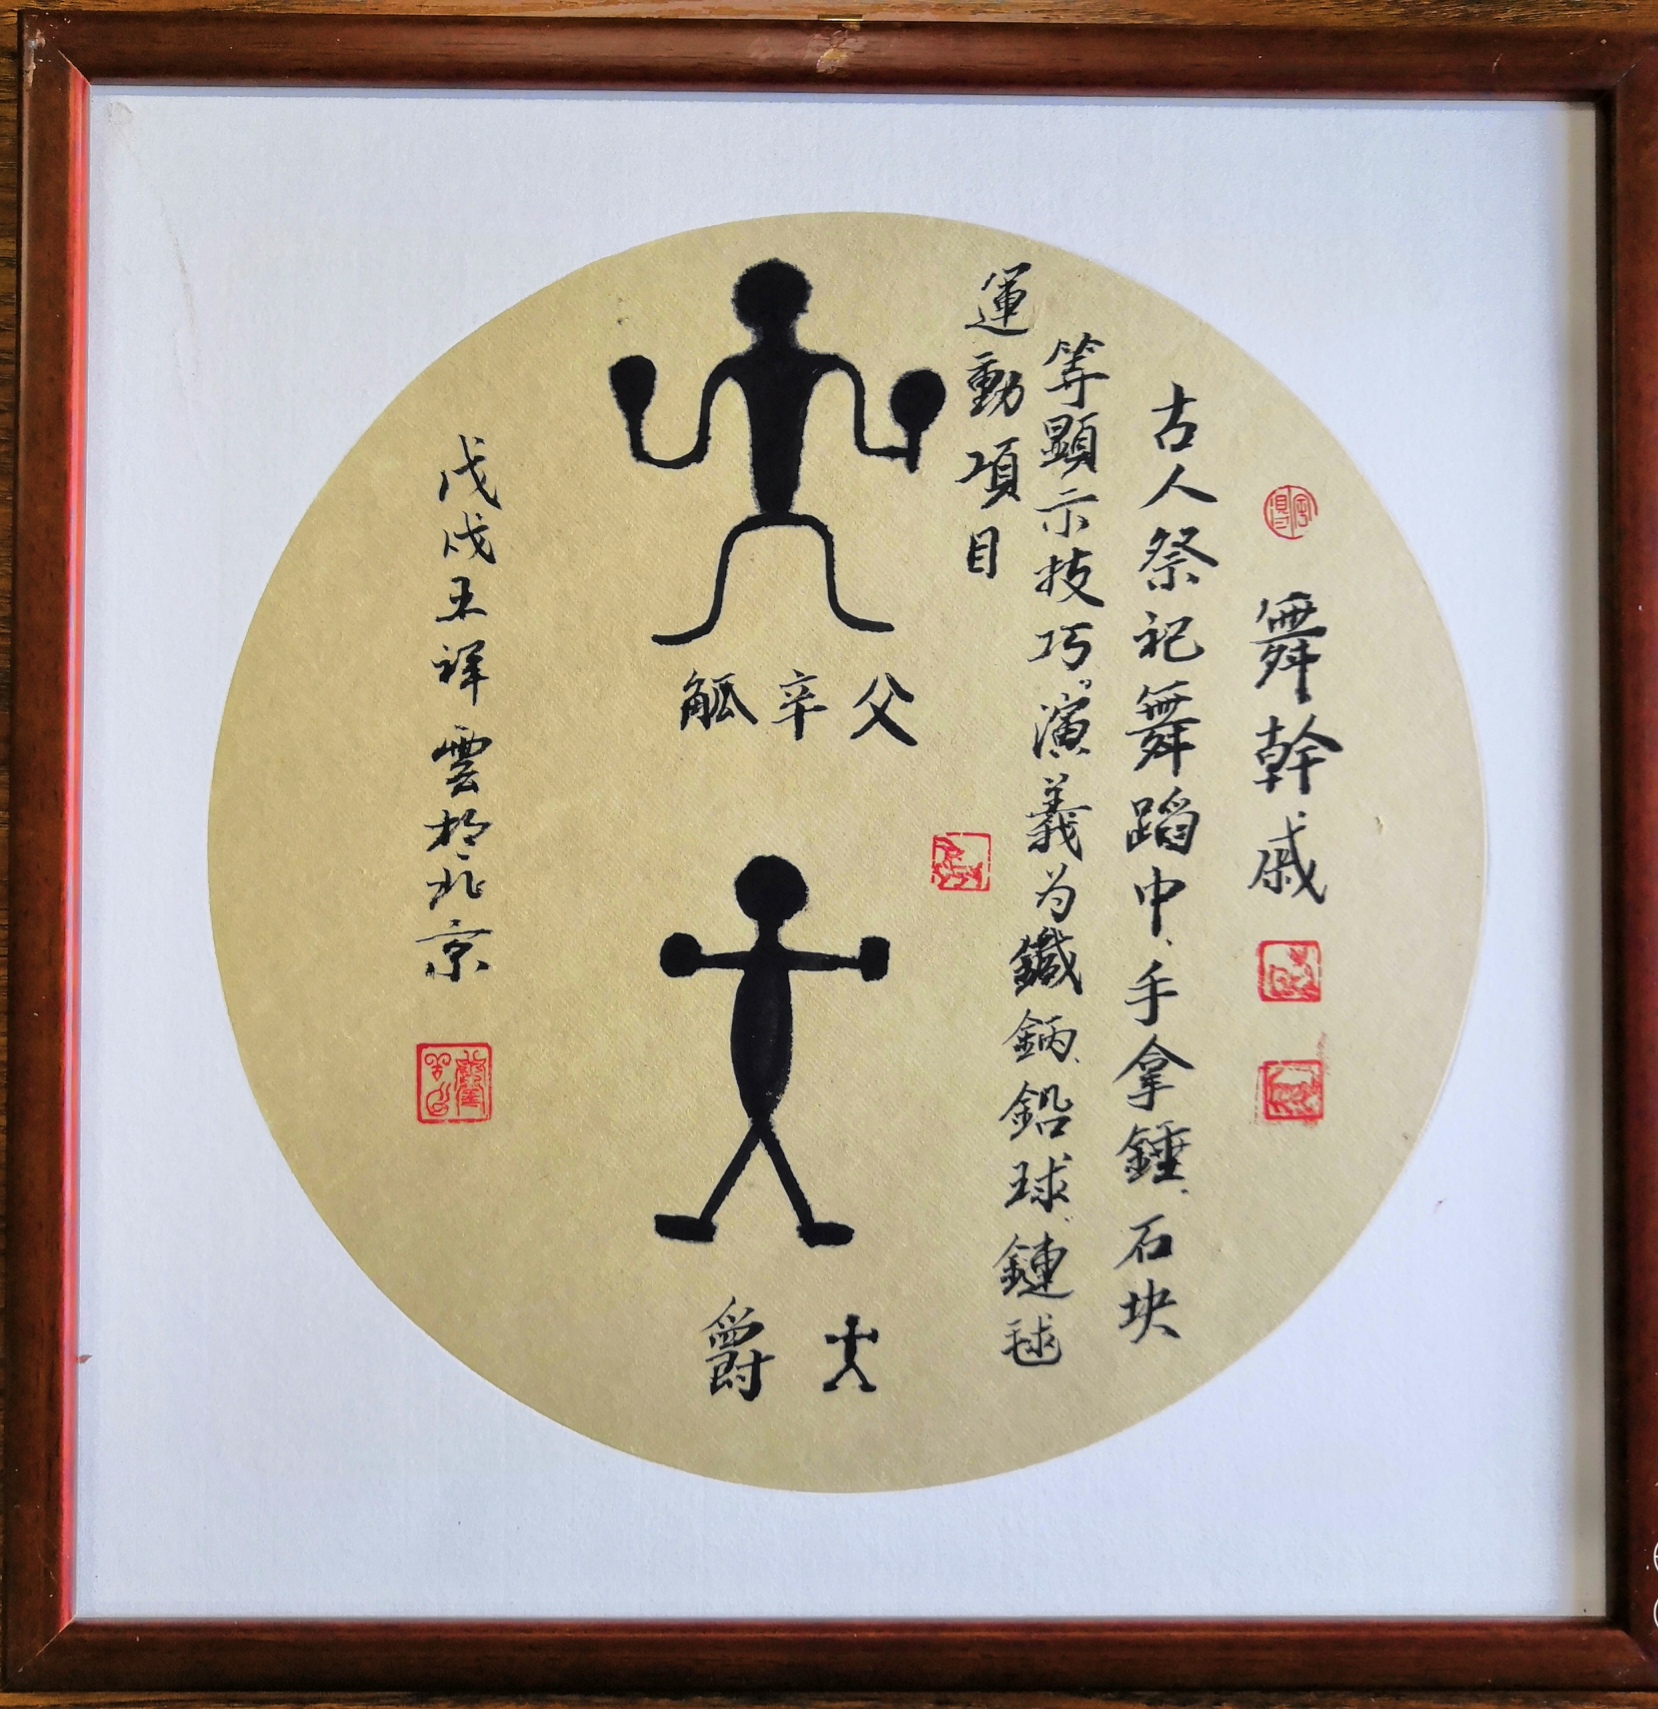 舞幹戚
古人祭祀舞蹈中、手拿錘、石块
等顯示技巧。演義为鐵鈵、鉛球、鏈毬
運動項目
父辛觚
爵
戊戌王祥雲於北京